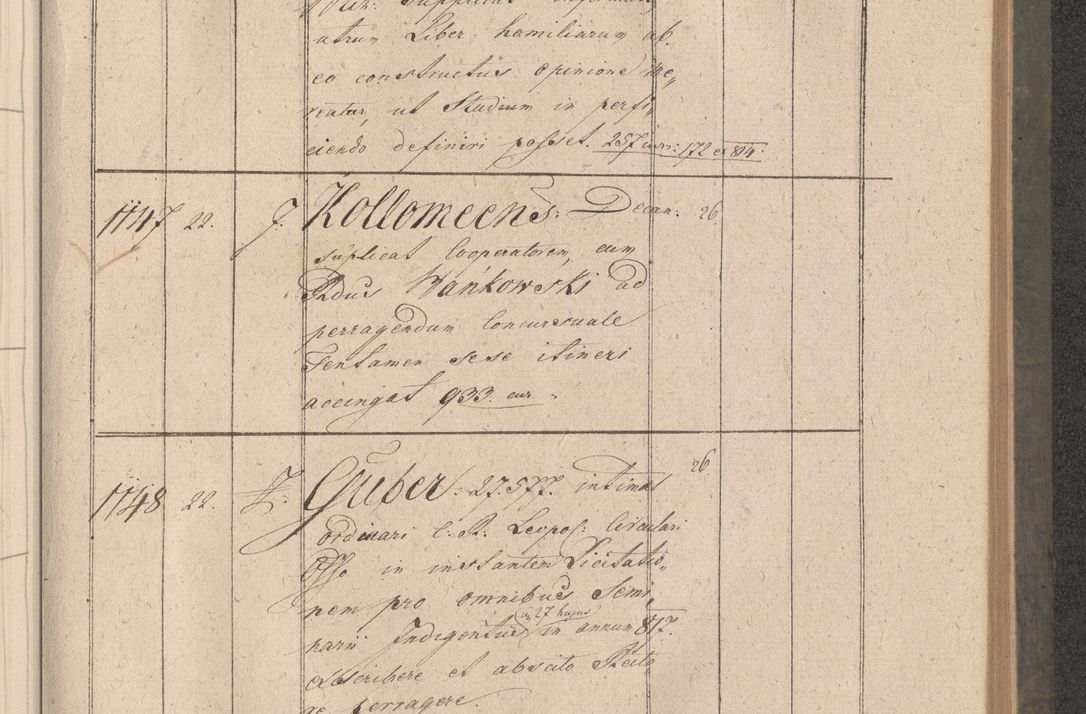 supplicat
atrum Liber hamiliarum ab
eo constructus opinione me„
reatur, ut Studium in perfi„
ciendo definiri posset. 257 curr: 172 et 814.
1147 22. J. Kollomeens: Decan: 26
suplicat Cooperatorem, cum
Rdus Wańkowski ad
perragendum Concursuale
Tentamen sese itineri
accingat 933. cur.
1148 22. Z: Guber: 27.577. intimat 26
Ordinari C: R: Leopol: Circulari
Offo in instantem Licitatio„
nem pro omnibus Semi„
in 27 hujus
narii Indigentiis in annum 817.
describere et abscito
perragere.